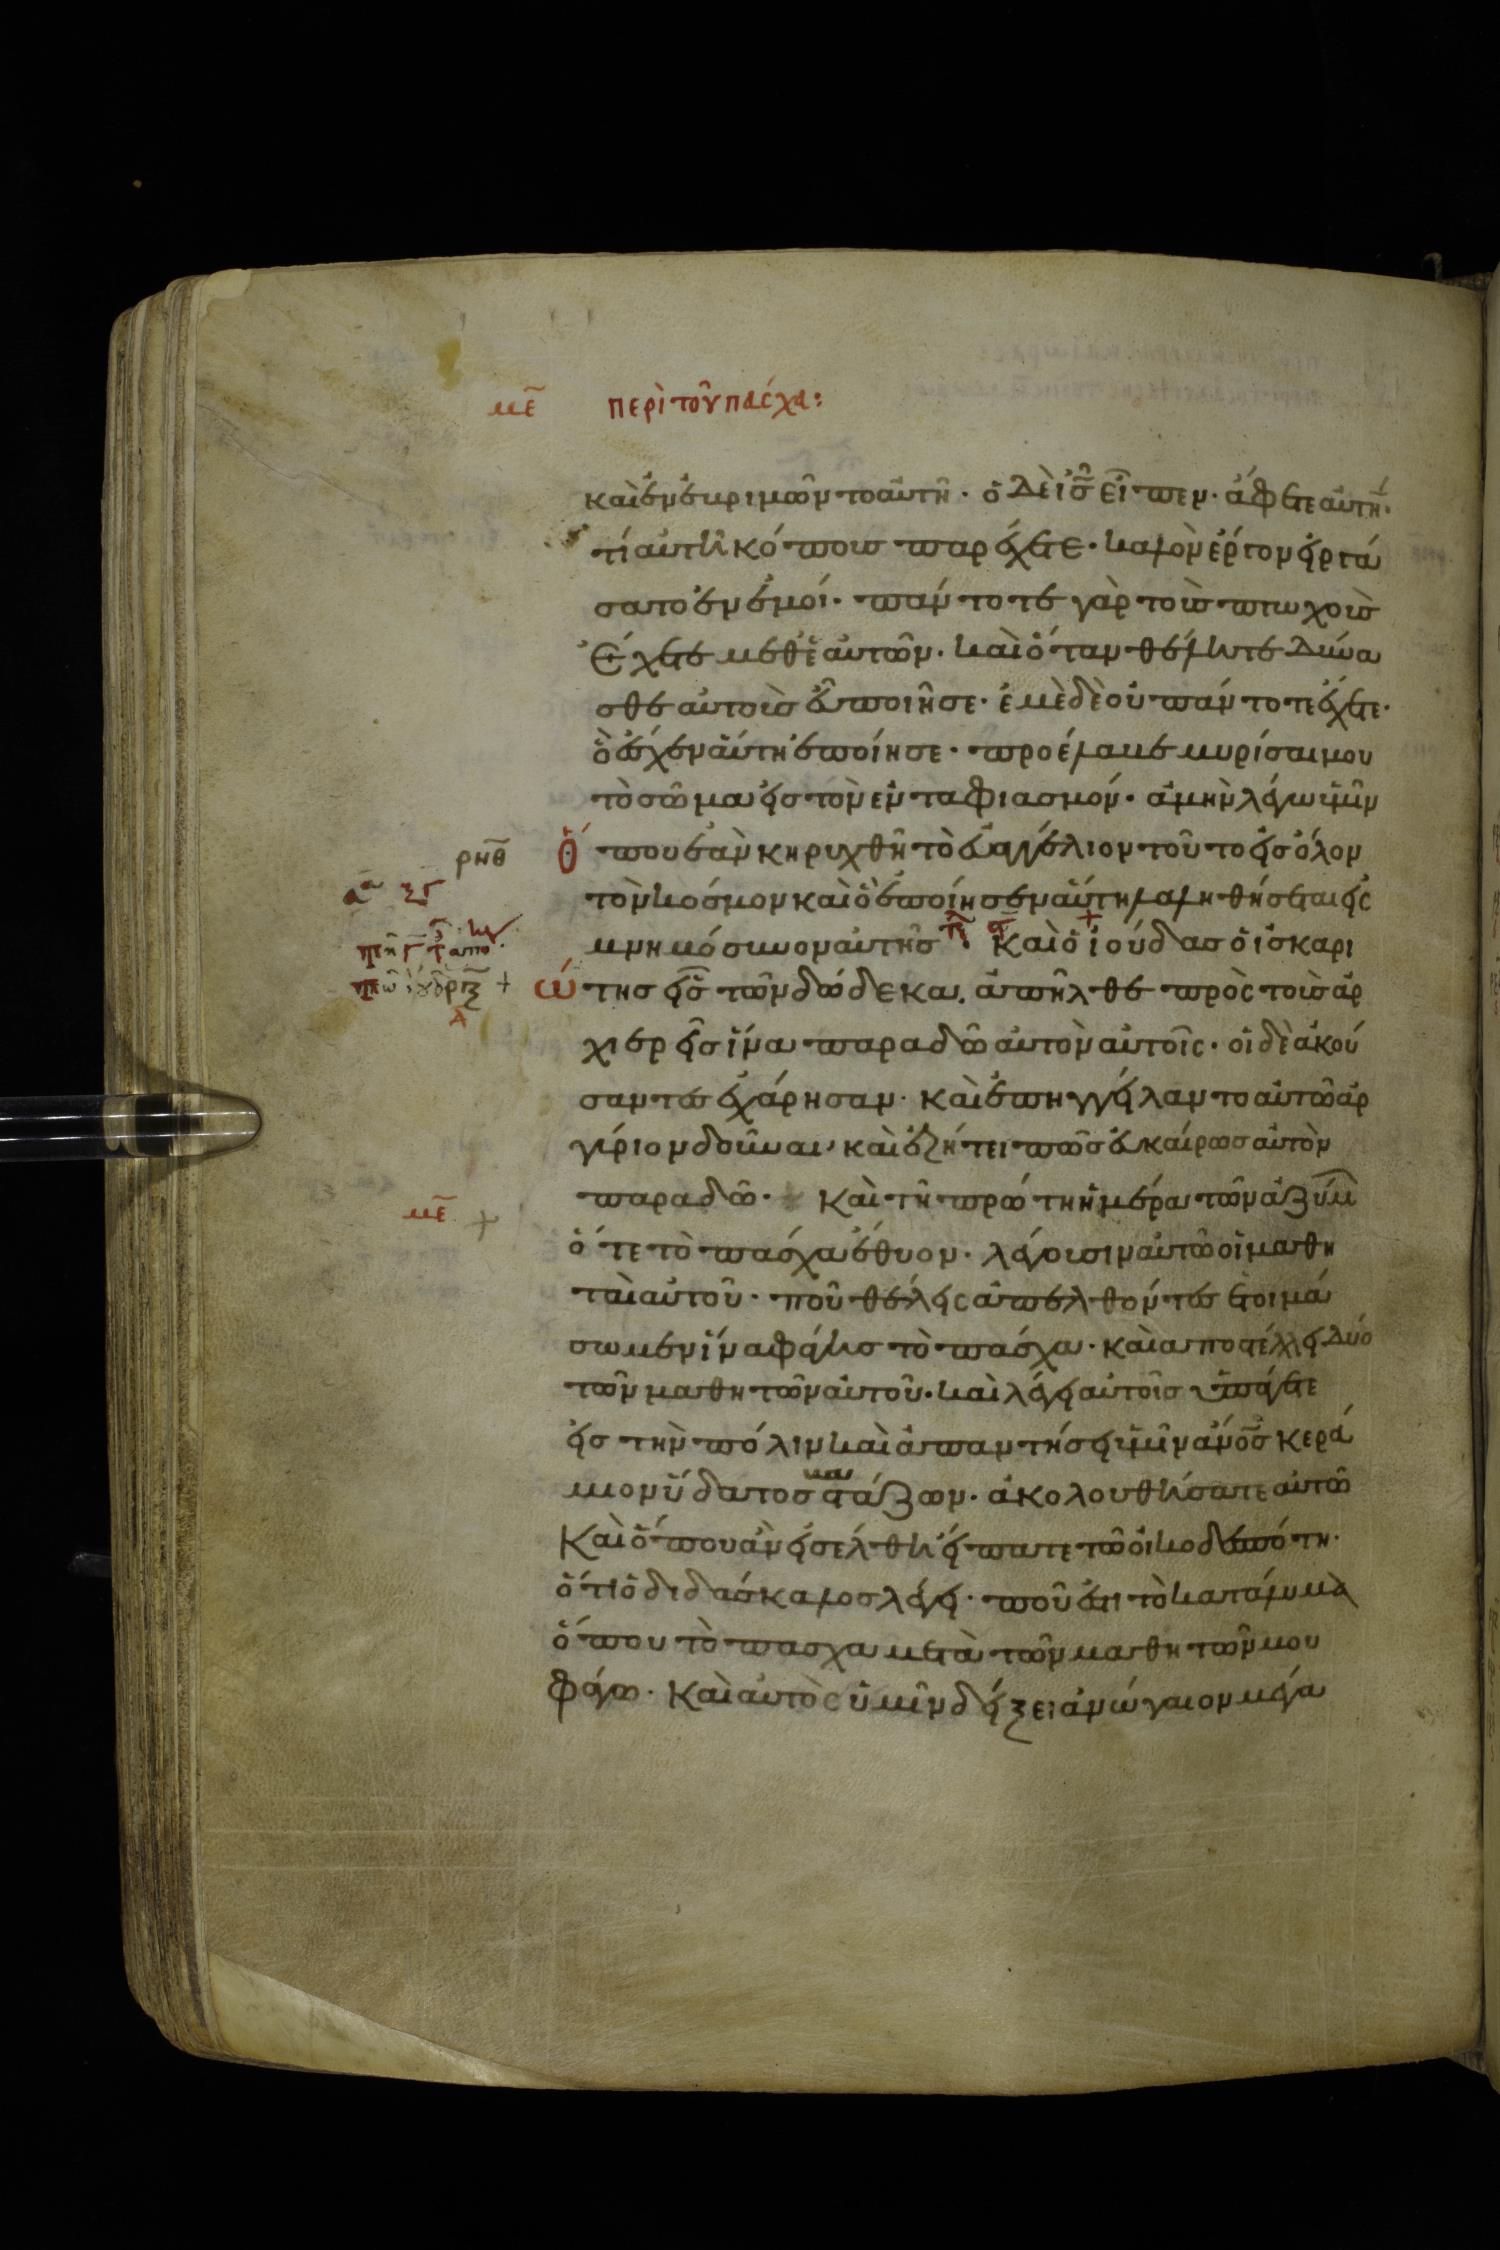 με̅ περὶ τοῦ πάσχα:
καὶ ἐνεβριμῶντο αὐτῆ· ὁ δὲ ι̅ς̅ εἶπεν· ἄφετε αὐτήν·
τί αὐτῆ κόπους παρέχετε· καλὸν ἔργον ἐργά
σατο ἐν ἐμοί· πάντοτε γὰρ τοὺς πτωχοὺς
ἔχετε μεθ' ἑαυτῶν· καὶ ὅταν θέλητε δύνα
σθε αὐτοὺς εὖ ποιῆσε· ἐμὲ δὲ οὐ πάντοτε ἔχετε·
ὃ ἔσχεν αὕτη ἐποίησε· προέλαβε μυρίσαι μου
τὸ σῶμα εἰς τὸν ἐνταφιασμόν· ἀμὴν λέγω ὑμῖν
ρπ̅θ̅ ὅπου ἐὰν κηρυχθῆ τὸ εὐαγγέλιον τοῦτο εἰς ὅλον
τὸν κόσμον καὶ ὃ ἐποίησεν αὕτη λαληθήσεται εἰς
μνημόσυνον αὐτῆς· Καὶ ὁ ἰούδας ὁ ἰσκαρι
ώτης εἷς τῶν δώδεκα. ἀπῆλθε πρὸς τοὺς ἀρ
χιερεῖς ἵνα παραδῶ αὐτὸν αὐτοῖς· οἱ δὲ ἀκού
σαντες ἐχάρησαν· καὶ ἐπηγγείλαντο αὐτῶ ἀρ
γύριον δοῦναι· καὶ ἐζήτει πῶς εὐκαίρως αὐτὸν
παραδῶ· Καὶ τῆ πρώτη ἡμέρα τῶν ἀζύμ
με̅ ὅτε τὸ πάσχα ἔθυον· λέγουσιν αὐτῶ οἱ μαθη
ταὶ αὐτοῦ· ποῦ θέλεις ἀπελθόντες ἑτοιμά
σωμεν ἵνα φάγης τὸ πάσχα· καὶ αποστέλλει δύο
τῶν μαθητῶν αὐτοῦ· καὶ λέγει αὐτοῖς ὑπάγετε
εἰς τὴν πόλιν καὶ ἀπαντήσει ὑμῖν α̅ν̅ο̅ς̅ κερά
μιον ὕδατος βαστάζων· ἀκολουθήσατε αὐτῶ
Καὶ ὅπου ἂν εἰσέλθη εἴπατε τῶ οἰκοδεσπότη·
ὅτι ὁ διδάσκαλος λέγει· ποῦ ἐστι τὸ κατάλυμα
ὅπου τὸ πασχα μετὰ τῶν μαθητῶν μου
φάγω· Καὶ αὐτὸς ὑμῖν δείξει ἀνώγαιον μέγα